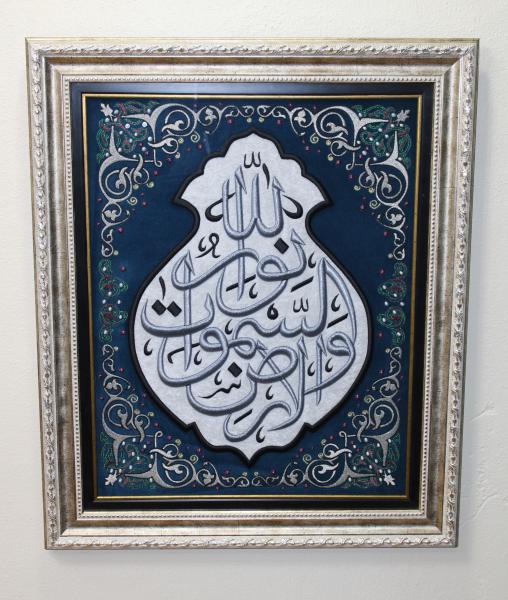 الله
نور
السموات
والارض